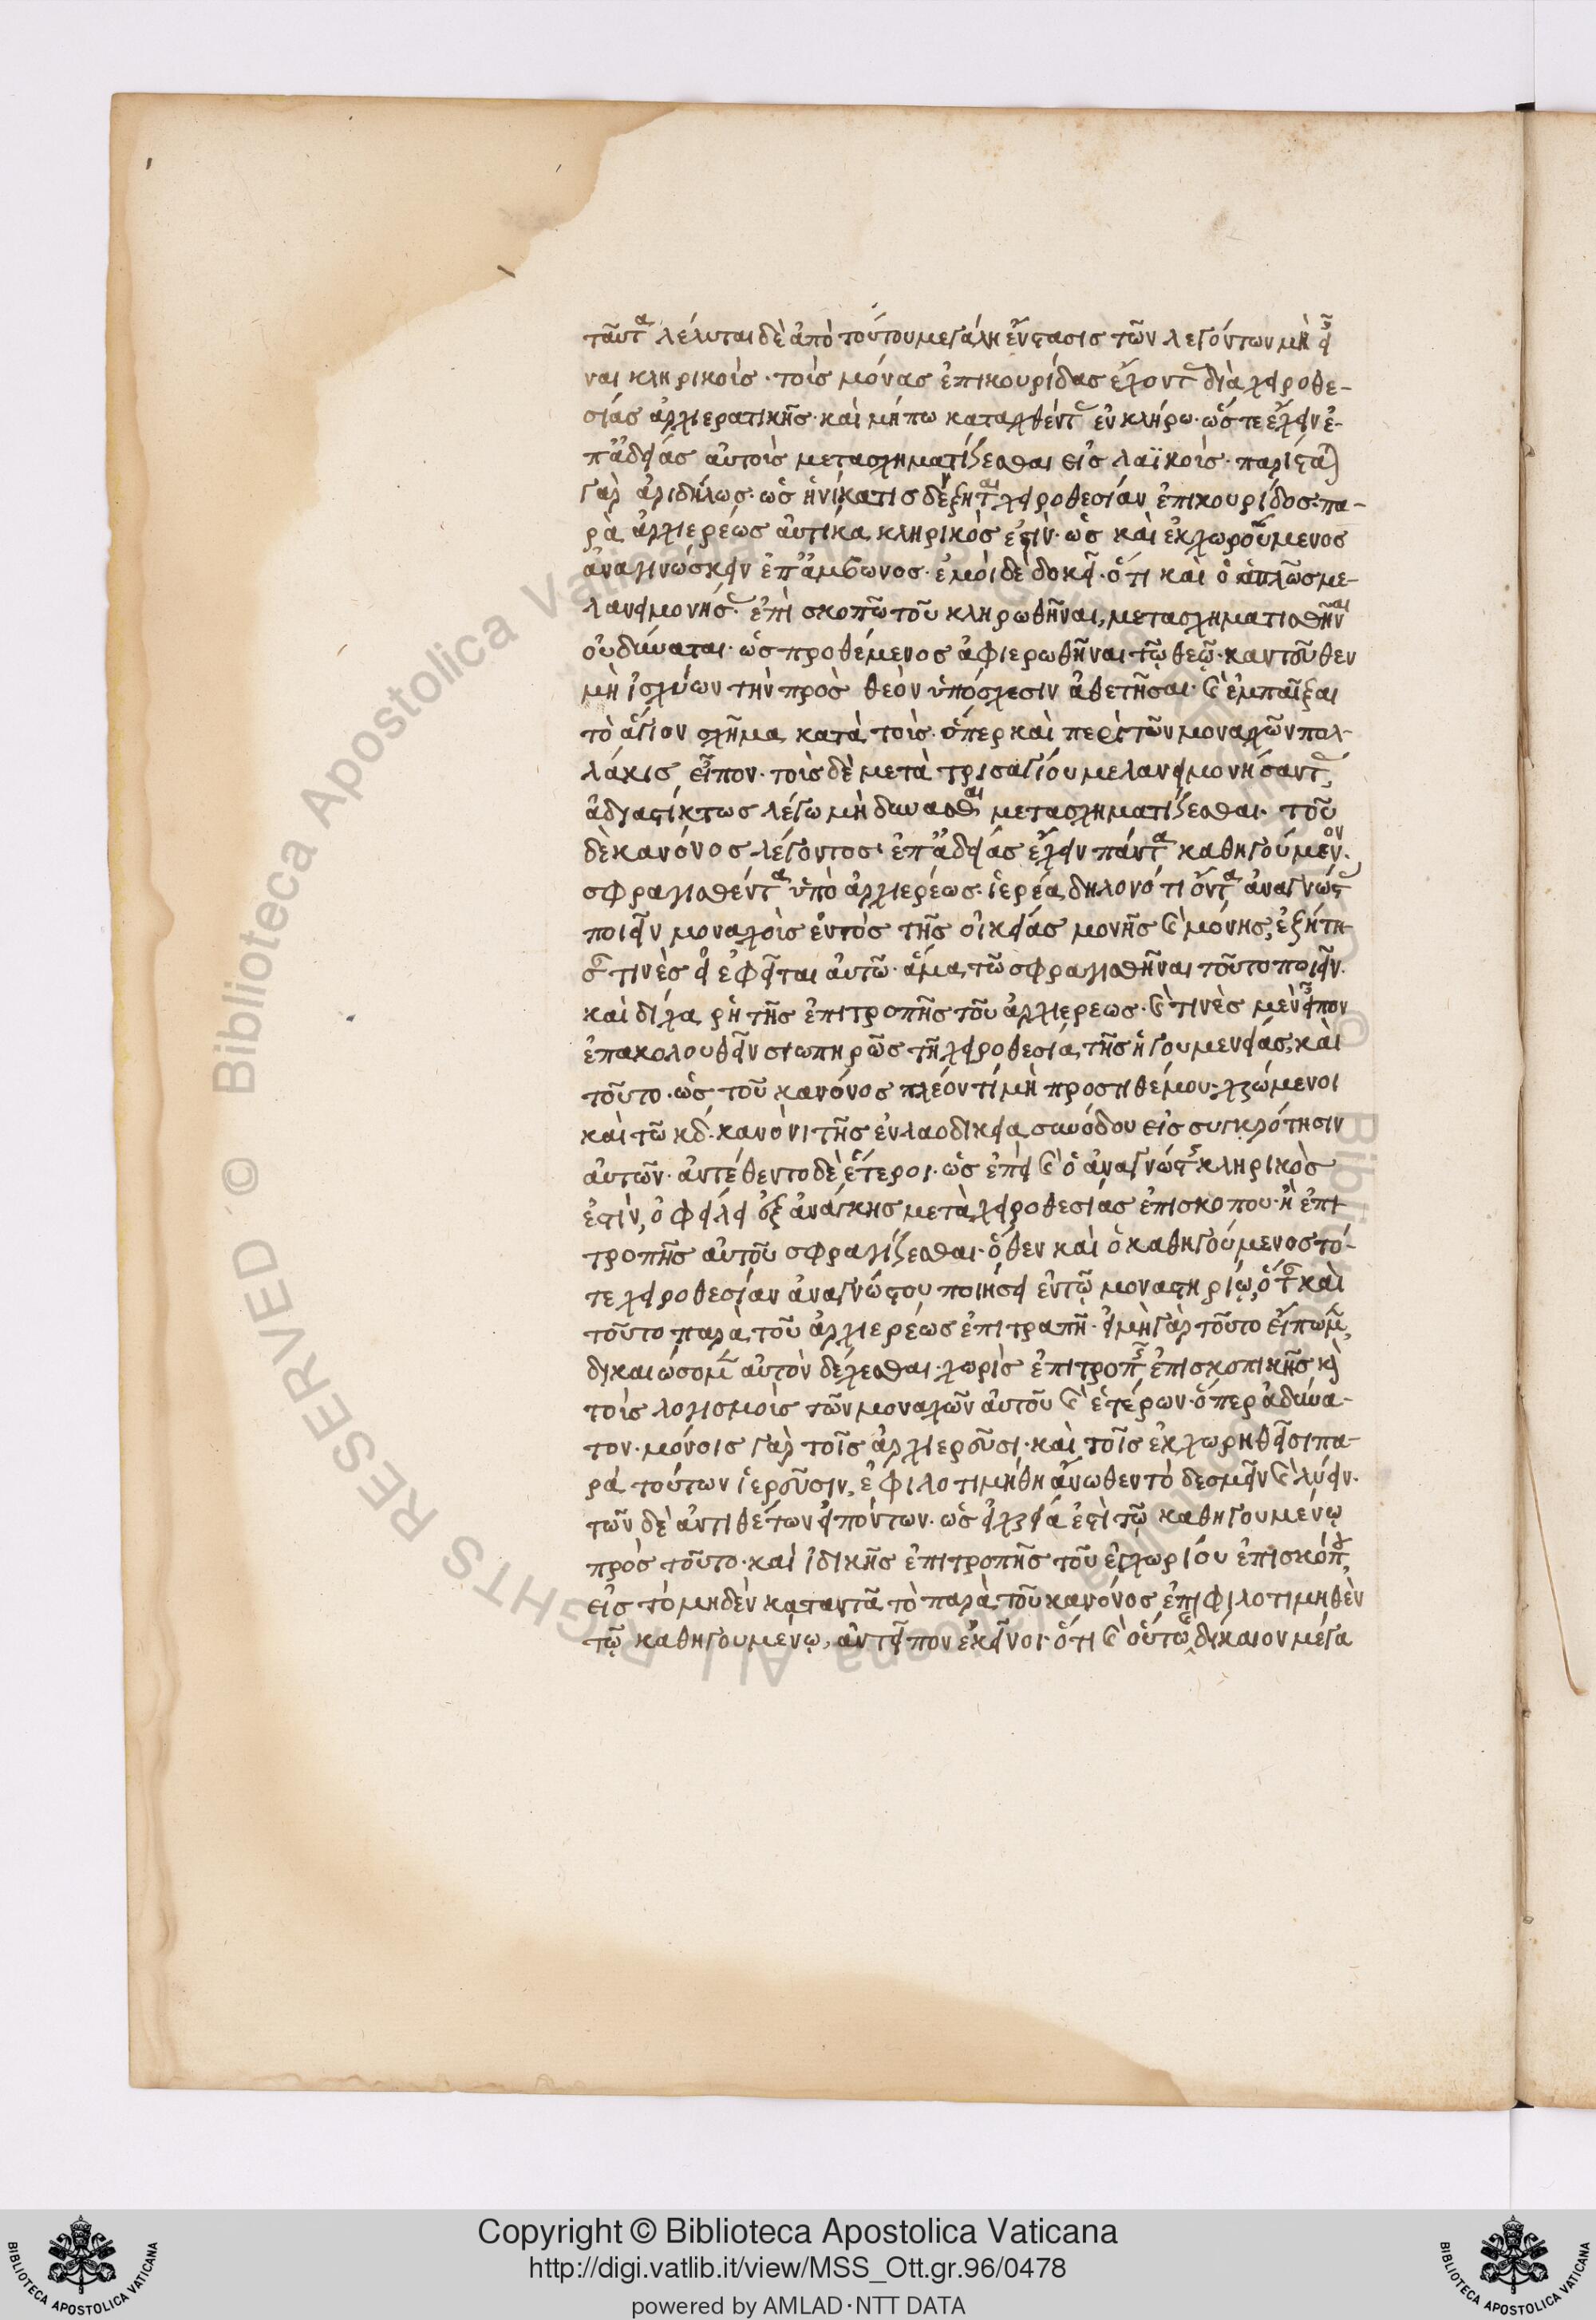 ταῦτα λέλυται δὲ ἀπὸ τούτου μεγάλη ἔνστασις τῶν λεγόντων μὴ εἶ
ναι κληρικοὺς τοὺς μόνας ἐπικουρίδας ἔχοντας διὰ χειροθε-
σίας ἀρχιερατικῆς· καὶ μήπω καταχθέντας ἐν κλήρω· ὥστε ἔχειν ἐ-
π᾽ ἀδείας αὐτοὺς μετασχηματίζεσθαι εἰς λαϊκοὺς· παρίσταται
γὰρ ἀριδήλως· ὡς ἡνίκα τις δέξηται χειροθεσίαν ἐπικουρίδος· πα-
ρὰ ἀρχιερέως αὐτίκα κληρικὸς ἐστὶν· ὡς καὶ ἐκχωρούμενος
ἀναγινώσκειν ἐπ᾽ ἄμβωνος· ἐμοὶ δὲ δοκεῖ· ὅτι καὶ ὁ ἁπλῶς με-
λανειμονήσας· ἐπὶ σκοπῶ τοῦ κληρωθῆναι, μετασχηματισθῆναι
οὐ δύναται· ὡς προθέμενος ἀφιερωθῆναι τῷ θεῷ· κἀντεῦθεν
μὴ ἰσχύων τὴν πρὸς θεὸν ὑπόσχεσιν ἀθετῆσαι· καὶ ἐμπαῖξαι
τὸ ἅγιον σχῆμα κατὰ τοὺς· ὅπερ καὶ περὶ τῶν μοναχῶν πολ-
λάκις εἶπον· τοὺς δὲ μετὰ τρισαγίου μελανειμονήσαντας,
ἀδιαστίκτως λέγω μὴ δύνασθαι μετασχηματίζεσθαι· τοῦ
δὲ κανόνος λέγοντος· ἐπ᾽ ἀδείας ἔχειν πάντα καθηγούμενον·
σφραγισθέντα ὑπὸ ἀρχιερέως· ἱερέα δηλονότι ὄντα ἀναγνώστας
ποιεῖν μοναχοὺς ἐντὸς τῆς οἰκείας μονῆς καὶ μόνης, ἐζήτη-
σάν τινὲς εἰ ἐφεῖται αὐτῶ· ἅμα τῶ σφραγισθῆναι τοῦτο ποιεῖν·
καὶ δίχα ῥητῆς ἐπιτροπῆς τοῦ ἀρχιερεως· καὶ τινὲς μὲν εἶπον
ἐπακολουθεῖν σιωπηρῶς τῆ χειροθεσία τῆς ἡγουμενείας, καὶ
τοῦτο· ὡς τοῦ κανόνος πλέον τί μὴ προστιθεμένου· χρώμενοι
καὶ τῶ κδ. κανόνι τῆς ἐν λαοδικεία συνόδου εἰς συγκρότησιν
αὐτῶν· ἀντέθεντο δὲ ἕτεροι· ὡς ἐπεὶ καὶ ὁ ἀναγνώστης κληρικὸς
ἐστὶν, ὀφείλει ἐξ ἀνάγκης μετὰ χειροθεσίας ἐπισκοπου· ἢ ἐπι
τροπῆς αὐτοῦ σφραγίζεσθαι· ὅθεν καὶ ὁ καθηγούμενος τό-
τε χειροθεσίαν ἀναγνώστου ποιήσει ἐν τῷ μοναστηρίῳ, ὅταν καὶ
τοῦτο παρὰ τοῦ ἀρχιερέως ἐπιτραπῆ· εἰ μὴ γὰρ τοῦτο εἴπωμεν,
δικαιώσομεν αὐτὸν δέχεσθαι· χωρὶς ἐπιτροπῆς ἐπισκοπικῆς καὶ
τοὺς λογισμοὺς τῶν μοναχῶν αὐτοῦ καὶ ἑτέρων· ὅπερ ἀδύνα-
τον· μόνοις γὰρ τοῖς ἀρχιερεῦσι· καὶ τοῖς ἐκχωρηθεῖσι πα-
ρὰ τούτων ἱερεῦσιν, ἐφιλοτιμήθη ἄνωθεν τὸ δεσμεῖν καὶ λύειν·
τῶν δὲ ἀντιθέτων εἰπόντων· ὡς εἰ χρεία ἐστὶ τῷ καθηγουμένῳ
πρὸς τοῦτο· καὶ ἰδικῆς ἐπιτροπῆς τοῦ ἐγχωρίου ἐπισκόπου,
εἰς τὸ μηδὲν καταντᾶ τὸ παρὰ τοῦ κανόνος ἐπιφιλοτιμηθὲν
τῷ καθηγουμένῳ, ἀντεῖπον ἐκεῖνοι· ὅτι καὶ οὕτως δίκαιον μέγα
Copyright © Biblioteca Apostolica Vaticana
http://digi.vatlib.it/view/MSS_Ott.gr.96/0478
powered by AMLAD·NTT DATA